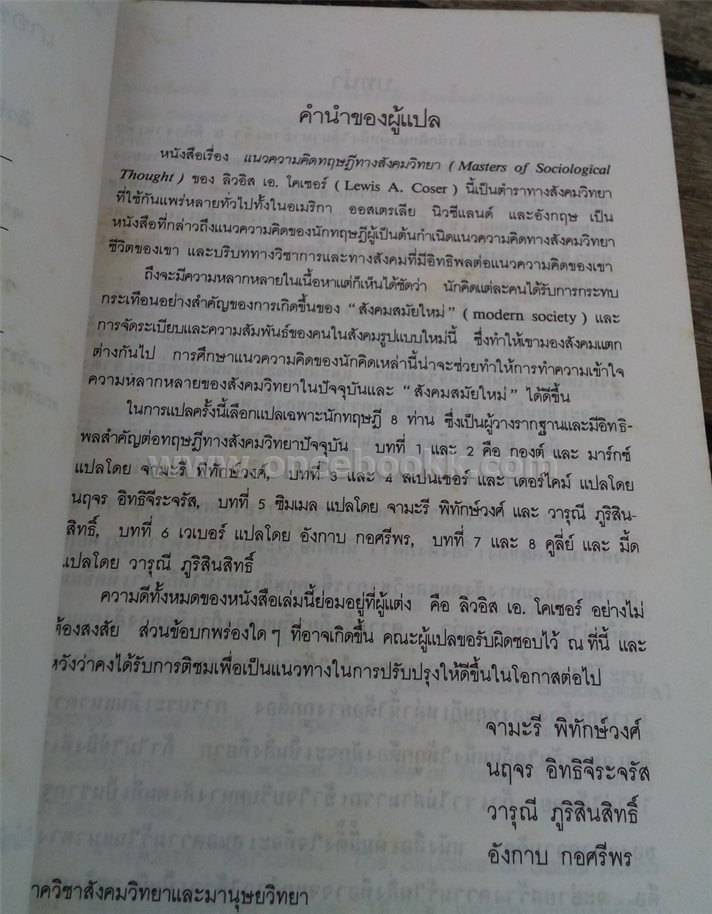 คำนำของผู้แปล
หนังสือเรื่อง แนวความคิดทฤษฎีทางสังคมวิทยา ( Masters of Sociological
Thought ) ของ ลิวอิส เอ. โคเซอร์ ( Lewis A. Coser ) นี้เป็นตำราทางสังคมวิทยา
ที่ใช้กันแพร่หลายทั่วไปทั้งในอเมริกา ออสเตรเลีย นิวซีแลนด์ และอังกฤษ เป็น
หนังสือที่กล่าวถึงแนวความคิดของนักทฤษฎีผู้เป็นต้นกำเนิดแนวความคิดทางสังคมวิทยา
ชีวิตของเขา และบริบททางวิชาการและทางสังคมที่มีอิทธิพลต่อแนวความคิดของเขา
ถึงจะมีความหลากหลายในเนื้อหาแต่ก็เห็นได้ชัดว่า นักคิดแต่ละคนได้รับการกระทบ
กระเทือนอย่างสำคัญของการเกิดขึ้นของ “ สังคมสมัยใหม่ ” ( modern society ) และ
การจัดระเบียบและความสัมพันธ์ของคนในสังคมรูปแบบใหม่นี้ ซึ่งทำให้เขามองสังคมแตก
ต่างกันไป การศึกษาแนวความคิดของนักคิดเหล่านี้น่าจะช่วยทำให้การทำความเข้าใจ
ความหลากหลายของสังคมวิทยาในปัจจุบันและ “ สังคมสมัยใหม่ ” ได้ดีขึ้น
ในการแปลครั้งนี้เลือกแปลเฉพาะนักทฤษฎี 8 ท่าน ซึ่งเป็นผู้วางรากฐานและมีอิทธิ-
พลสำคัญต่อทฤษฎีทางสังคมวิทยาปัจจุบัน บทที่ 1 และ 2 คือ กองต์ และ มาร์กซ์
แปลโดย จามะรี พิทักษ์วงศ์, บทที่ 3 และ 4 สเปนเซอร์ และ เดอร์ไคม์ แปลโดย
นฤจร อิทธิจีระจรัส, บทที่ 5 ซิมเมล แปลโดย จามะรี พิทักษ์วงศ์ และ วารุณี ภูริสิน-
สิทธิ์, บทที่ 6 เวเบอร์ แปลโดย อังกาบ กอศรีพร, บทที่ 7 และ 8 คูลี่ย์ และ มี้ด
แปลโดย วารุณี ภูริสินสิทธิ์
www.oncebook.com
ความดีทั้งหมดของหนังสือเล่มนี้ย่อมอยู่ที่ผู้แต่ง คือ ลิวอิส เอ. โคเซอร์ อย่างไม่
ต้องสงสัย ส่วนข้อบกพร่องใด ๆ ที่อาจเกิดขึ้น คณะผู้แปลขอรับผิดชอบไว้ ณ ที่นี้ และ
หวังว่าคงได้รับการติชมเพื่อเป็นแนวทางในการปรับปรุงให้ดีขึ้นในโอกาสต่อไป
จามะรี พิทักษ์วงศ์
นฤจร อิทธิจีระจรัส
วารุณี ภูริสินสิทธิ์
อังกาบ กอศรีพร
าควิชาสังคมวิทยาและมานุษยวิทยา